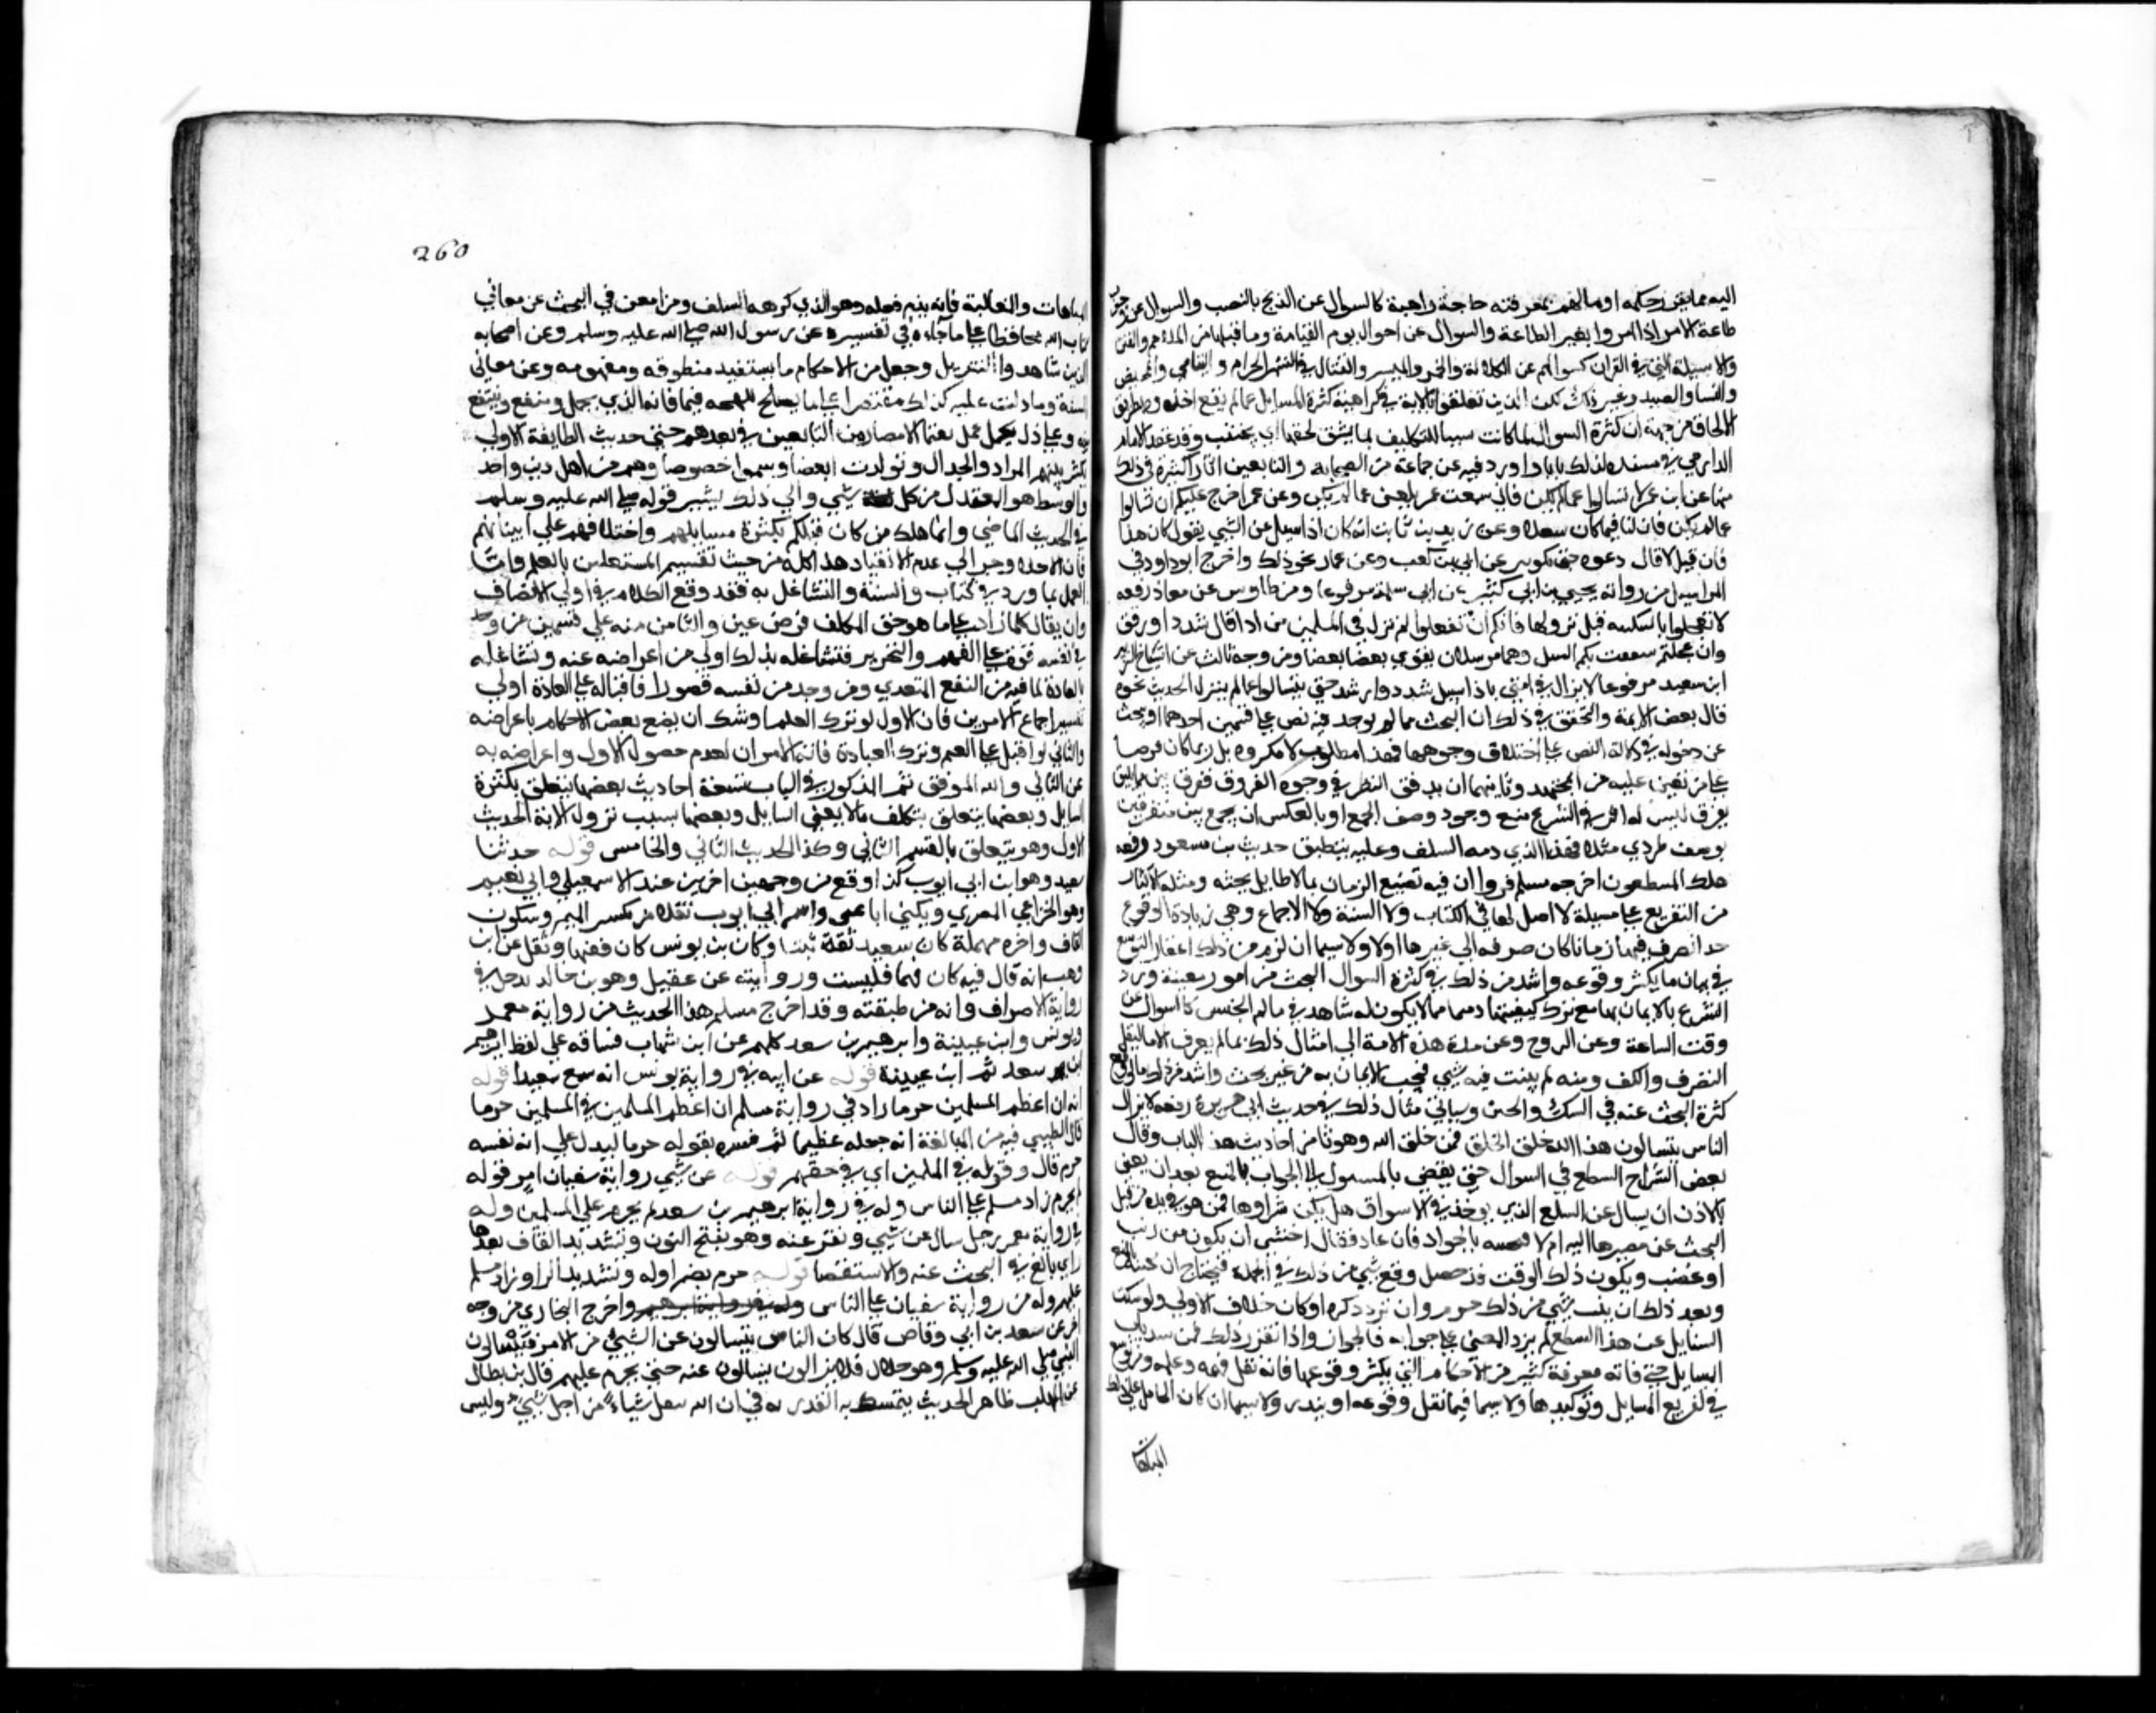 اليه مما يقرر حكمه او ما لهم بمعرفته حاجة راهبة كالسوال عن الذبح بالقصب والسوال عن وجوب
طاعة الامراذا امروا بغير الطاعة والسوال عن احوال يوم القيامة وما قبلها من الملاحم والفتن
والاسيلة التي في القران كسوالهم عن الكلالة والخمر والميسر والقتال في الشهر الحرام و اليتامي والمحيض
والنسا والصيد وغير ذلك لكن الذين تعلقوا بالاية في كراهية كثرة المسايل عما لم يقع اخذوه بطريق
الالحاق من جهة ان كثرة السوال لما كانت سببا للتكليف بما يشق لحقها ان يجتنب وقد عقد الامام
الدارمي في مسنده لذلك بابا واورد فيه عن جماعة من الصحابة والتابعين اثارا كثيرة في ذلك
منها عن ابن عمر لا تسالوا عما لم يكن فاني سمعت عمر يلعن عما لم يكن وعن عمر احرج عليكم ان تسالوا
عما لم يكن فان لنا فيما كان شغلا وعن زيد بن ثابت انه كان اذا سيل عن الشي يقول كان هذا
فان قيل لا قال دعوه حتي يكون وعن ابي بن كعب وعن عمار نحو ذلك واخرج ابو داود في
المراسيل من رواية يحيي بن ابي كثير عن ابي سلمة مرفوعا ومن طاوس عن معاذ رفعه
لا تعجلوا بالبلية قبل نزولها فانكم ان تفعلوا لم يزل في المسلمين من اذا قال سدد او وفق
وان عجلتم تشتتت بكم السبل وهما مرسلان يقوي بعضا بعضا ومن وجه ثالث عن اشياخ الزبير
ابن سعيد مرفوعا لا يزال في امتي من اذا سيل سدد وارشد حتي يتسالوا عما لم ينزل الحديث نحوه
قال بعض الايمة والتحقيق في ذلك ان البحث عما لم يوجد فيه نص علي قسمين احدهما او يبحث
عن دخوله في دلالة النص علي اختلاف وجوهها فهذا مطلوب لا مكروه بل ربما كان فرضا
علي من تعين عليه من المجتهدين وثانيهما ان يدقق النظر في وجوه الفروق فيفرق بين متماثلين
بفرق ليس له اثر في الشرع مع وجود وصف الجمع او بالعكس ان يجمع بين متفرقين
بوصف طردي مثلا فهذا الذي ذمه السلف وعليه ينطبق حديث بن مسعود رفعه
هلك المتنطعون اخرجه مسلم فراوا ان فيه تضييع الزمان بما لا طايل تحته ومثله الاكثار
من التفريع علي مسيلة لا اصل لها في الكتاب ولا السنة ولا الاجماع وهي نادرة الوقوع
جدا فيصرف فيها زمانا كان صرفه الي غيرها اولا ولا سيما ان لزم من ذلك اغفال التوسع
في بيان ما يكثر وقوعه واشد من ذلك في كثرة السوال البحث عن امور مغيبة ورد
الشرع بالايمان بها مع ترك كيفيتها ومنها ما لا يكون له شاهد في عالم الحس كالسوال عن
وقت الساعة وعن الروح وعن مدة هذه الامة الي امثال ذلك مما لم يعرف الا بالنقل
الصرف والكف ومنه لم يثبت فيه شي فيجب الايمان به من غير بحث واشد من ذلك ما يوقع
كثرة البحث عنه في الشك والحيرة وسياتي مثال ذلك في حديث ابي هريرة رفعه لا يزال
الناس يتسالون هذا الله خلق الخلق فمن خلق الله وهو ثامن احاديث هذا الباب وقال
بعض الشراح التنطع في السوال حتي يفضي بالمسول الي الجواب بالمنع بعد ان يفتي
بالاذن ان يسال عن السلع التي توجد في الاسواق هل يكره شراوها ممن هي في يده من قبل
البحث عن مصيرها اليه ام لا فيجيبه بالجواز فان عاد فقال اخشي ان يكون من نهب
او غصب ويكون ذلك الوقت قد حصل وقع شي من ذلك في الجملة فيحتاج ان يجيبه بالمنع
وبعد ذلك ان يثبت شي من ذلك حرم وان تردد كره او كان خلاف الاولي ولو سكت
السايل عن هذا التنطع لم يزد المفتي علي جوابه فالجواز واذا تقرر ذلك فمن سد باب
المسايل حتي فاته معرفة كثير من الاحكام التي يكثر وقوعها فانه يقل فهمه وعلمه ومن توسع
في تفريع المسايل وتوكيدها ولا سيما فيما يقل وقوعه او يندر ولا سيما ان كان الحامل علي ذلك
المباهات
260
المباهات والمغالبة فانه يذم فعله وهو الذي كرهه السلف ومن امعن في البحث عن معاني
كتاب الله محافظا علي ما جاء في تفسيره عن رسول الله صلي الله عليه وسلم وعن اصحابه
الذين شاهدوا التنزيل وحصل من الاحكام ما يستفيد منطوقه ومفهومه وعن معاني
السنة وما دلت عليه كذلك مقتصرا علي ما يصلح للحجة فيها فانه الذي يحمد وينفع وينتفع
به وعلي ذلك يحمل عمل فقها الامصار من التابعين فمن بعدهم حتي حدثت الطايفة الاولي
فكثر بينهم المراد والجدال وتولدت البغضا وسموا خصوما وهم من اهل دين واحد
والوسط هو المعتدل من كل شي والي ذلك يشير قوله صلي الله عليه وسلم
في الحديث الماضي وانما هلك من كان قبلكم بكثرة مسايلهم واختلافهم علي انبيائهم
فان الاختلاف يجر الي عدم الانقياد هذا كله من حيث تقسيم المشتغلين بالعلم واما
العمل بما ورد في كتاب والسنة والتشاغل به فقد وقع الكلام في اولي الانصاف
وان يقال كلما زاد علي ما هو حق المكلف فرض عين والناس منه علي قسمين من وجد
في نفسه قوة علي الفهم والتحرير فتشاغله بذلك اولي من اعراضه عنه وتشاغله
بالعبادة لما فيه من النفع المتعدي ومن وجد من نفسه قصورا فاقباله علي العبادة اولي
لعسر اجماع الامرين فان الاول لو ترك العلم لاوشك ان يضيع بعض الاحكام باعراضه
والثاني لو اقبل علي العلم وترك العبادة فاته الامران لعدم حصول الاول واعراضه به
عن الثاني والله الموفق ثم المذكور في الباب تسعة احاديث بعضها يتعلق بكثرة
المسايل وبعضها يتعلق بتكلف ما لا يعني السايل وبعضها بسبب نزول الاية الحديث
الاول وهو يتعلق بالقسم الثاني وكذا الحديث الثاني والخامس قوله حدثنا
سعيد وهو ابن ابي ايوب كذا وقع من وجهين اخرين عند الاسمعيلي وابي نعيم
وهو الخزاعي المصري ويكني ابا يحيي واسم ابي ايوب مقلاص بكسر الميم وسكون
القاف واخره مهملة كان سعيد ثقة ثبتا وكان بن يونس كان فقيها ونقل عن ابن
وهب انه قال فيه كان فهما فليست وروايته عن عقيل وهو بن خالد تدخل في
رواية الاقران وانه من طبقته وقد اخرج مسلم هذا الحديث من رواية معمر
ويونس وابن عيينة وابرهيم بن سعد كلهم عن ابن شهاب فساقه علي لفظ ابرهيم
ابن سعد ثم ابن عيينة قوله عن ابيه في رواية يونس انه سمع سعيدا قوله
انه ان اعظم المسلمين جرما زاد في رواية مسلم ان اعظم المسلمين في المسلمين جرما
قال الطيبي فيه من المبالغة انه جعله عظيما ثم فسره بقوله جرما ليدل علي انه نفسه
جرم قال وقوله في المسلمين اي في حقهم قوله عن شي رواية سفيان امر قوله
لم يحرم زاد مسلم علي الناس وله في رواية ابرهيم بن سعد لم يحرم علي المسلمين وله
في رواية معمر رجل سال عن شي ونقر عنه وهو بفتح النون وتشديد القاف بعدها
راي بالغ في البحث عنه والاستقصا قوله حرم بضم اوله وتشديد الرا وزاد مسلم
عليهم وله من رواية سفيان علي الناس واخرج البخاري من وجه
اخر عن سعد بن ابي وقاص قال كان الناس يتسالون عن الشيئ من الامر فيسالون
النبي صلي الله عليه وسلم وهو حلال فلا يزالون يسالون عنه حتي يحرم عليهم قال بن بطال
عن المهلب ظاهر الحديث يتمسك به القدرية في ان الله يفعل شياء من اجل شيئ وليس